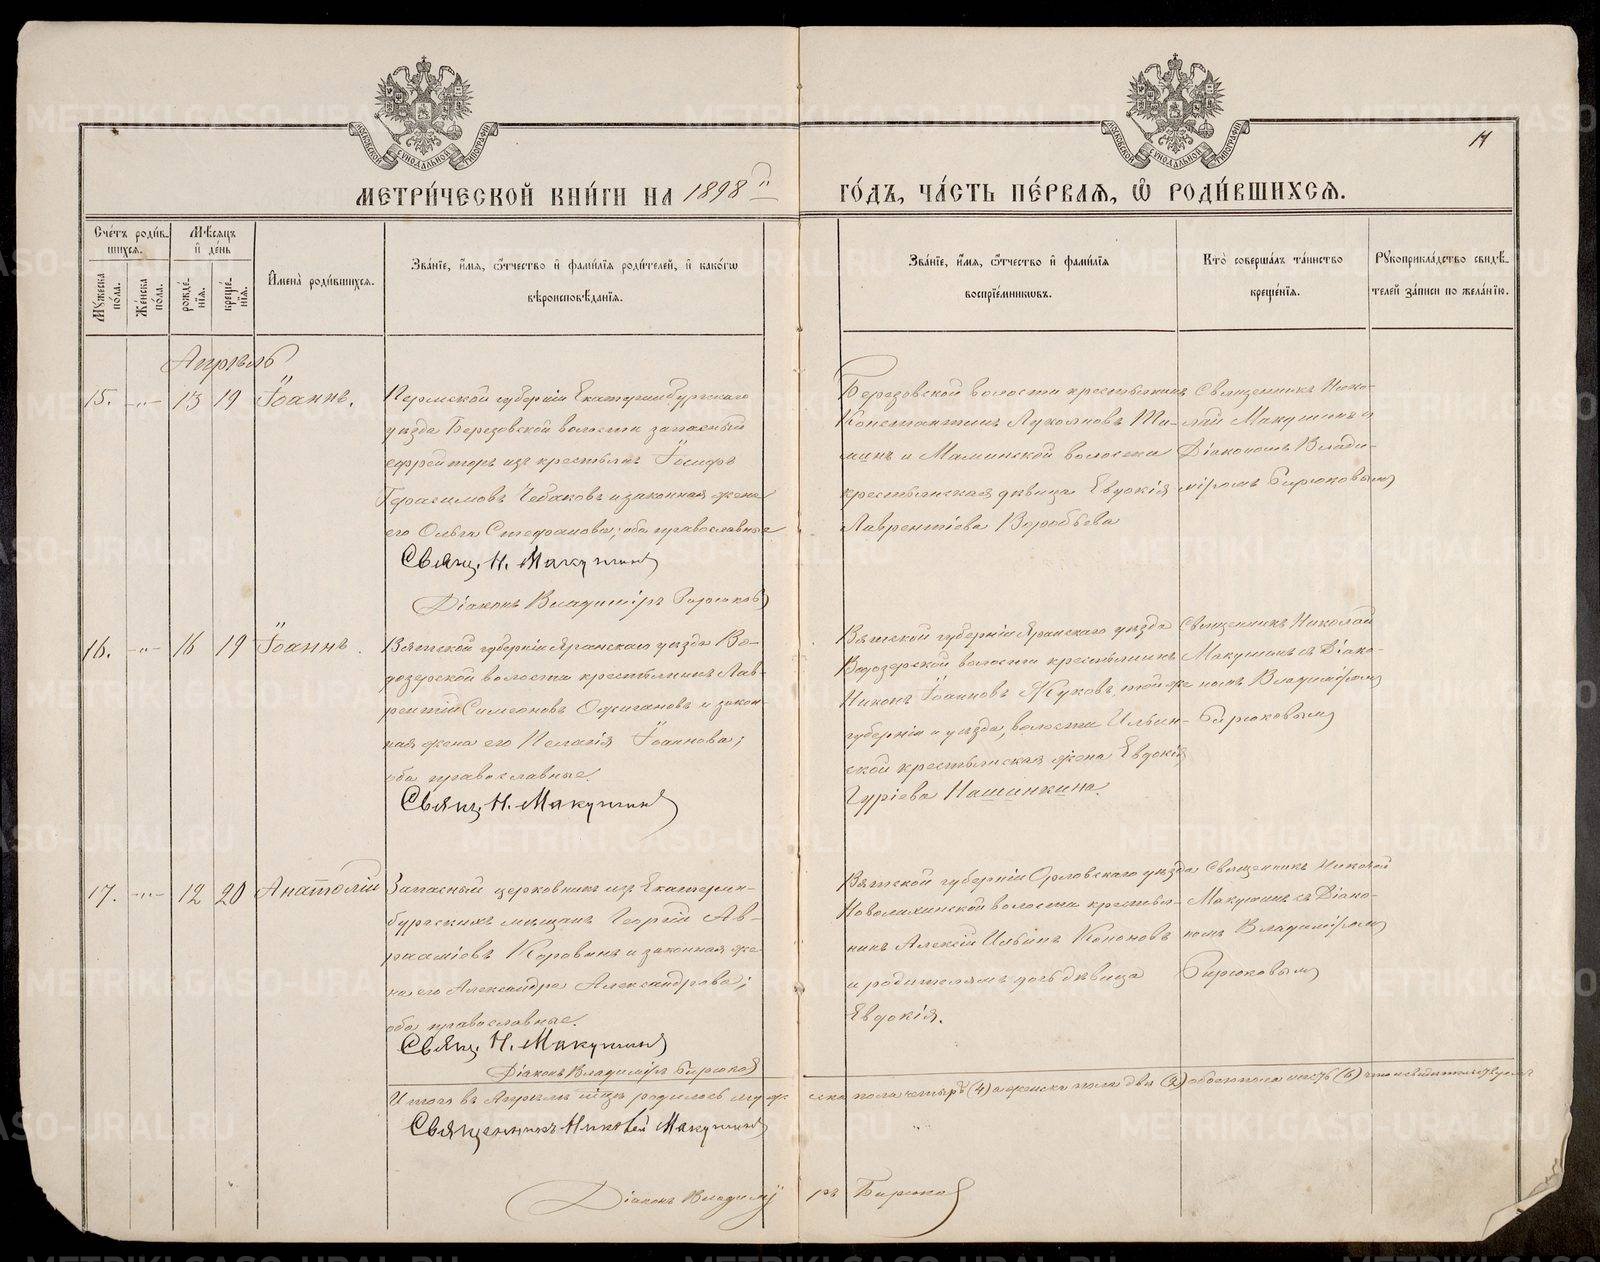 МОСКОВСКОЙ СѴНОДАЛЬНОЙ ТИПОГРАФІИ
МОСКОВСКОЙ СѴНОДАЛЬНОЙ ТИПОГРАФІИ
МЕТРИ́ЧЕСКОЙ КНИ́ГИ НА 1898й
ГО́ДЪ, ЧА́СТЬ ПЕ́РВАЯ, Ѽ РОДИ́ВШИХСЯ.
Сче́тъ роди́в-
шихся.
Мѣ́сяцъ
и҆ де́нь
Мꙋ́жеска по́ла.
Же́нска по́ла.
рожде́-
нїя.
креще́-
нїя.
И҆мена̀ роди́вшихся.
Зва́нїе, и҆́мя, ѻ҆́тчество и҆ фами́лїя роди́телей, и҆ како́гѡ
вѣроисповѣ́данїя.
Зва́нїе, и҆́мя, ѻ҆́тчество и҆ фами́лїя
воспрїе́мникѡвъ.
Кто̀ соверша́лъ та́инство
креще́нїя.
Рꙋкоприкла́дство свидѣ́-
телей за́писи по жела́нїю.
Апрѣль
15. -"- 13 19 Іоаннъ.
Пермской губерніи Екатеринбургскаго
уѣзда Березовской волости запасный
ефрейторъ изъ крестьянъ Іосифъ
Герасимовъ Чебаковъ и законная жена
его Ольга Стефанова; оба православные
Свящ. Н. Макушинъ
Діаконъ Владиміръ Бирюковъ
Березовской волости крестьянинъ
Константинъ Лукояновъ Ти-
минъ и Маминской волости
крестьянская дѣвица Евдокія
Лаврентіева Воробьева
Священникъ Нико-
лай Макушинъ и
Діакономъ Влади-
міромъ Бирюковымъ
16. -"- 16 19 Іоаннъ.
Вятской губерніи Яранскаго уѣзда Во-
дозерской волости крестьянинъ Лав-
рентій Симеоновъ Ожигановъ и закон-
ная жена его Пелагія Іоаннова;
оба православные.
Свящ. Н. Макушинъ
Вятской губерніи Яранскаго уѣзда
Водозерской волости крестьянинъ
Никонъ Іоанновъ Жуковъ, той же
губерніи и уѣзда, волости Ильин-
ской крестьянская жена Евдокія
Гуріева Пашинкина.
Священникъ Николай
Макушинъ съ Діако-
номъ Владиміромъ
Бирюковымъ
17. -"- 12 20 Анатолій
Запасный церковникъ изъ Екатерин-
бургскихъ мѣщанъ Георгій Ав-
рааміевъ Коровинъ и законная же-
на его Александра Александрова;
оба православные.
Свящ. Н. Макушинъ
Діаконъ Владиміръ Бирюковъ
Вятской губерніи Орловскаго уѣзда
волости крестья-
нинъ Алексій Ильинъ Кононовъ
и родителямъ дочь дѣвица
Евдокія.
Священникъ Николай
Макушинъ съ Діако-
номъ Владиміромъ
Бирюковымъ
Итого въ Апрѣлѣ мѣц. родилось муж ска пола четыре (4) а женска пола два (2) обоего пола шесть (6) что и свидѣтельствуемъ
Священникъ Николай Макушинъ
Діаконъ Владимі ръ Бирюковъ
METRIKI.GASO-URAL.RU